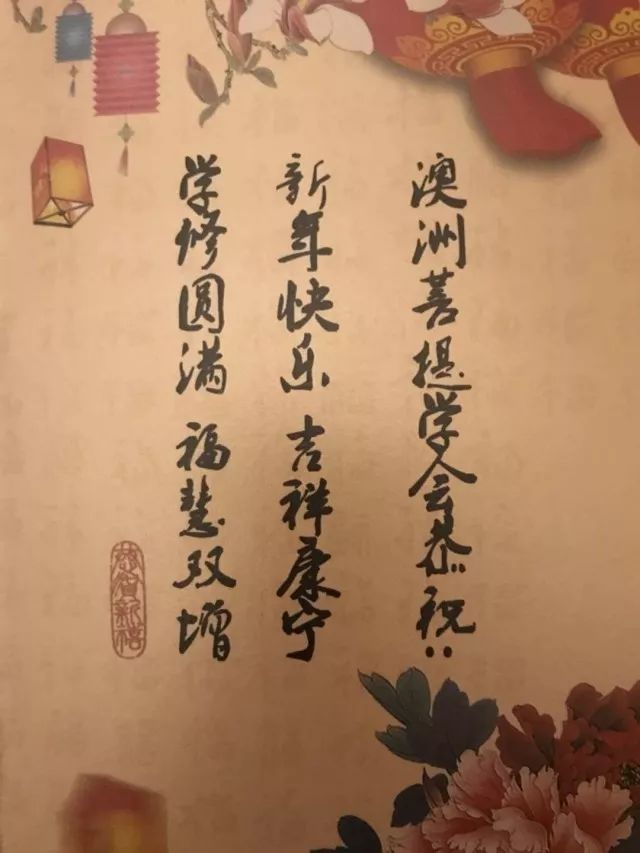 澳洲菩提学会恭祝：
新年快乐 吉祥康宁
学修圆满 福慧双增
恭贺新禧